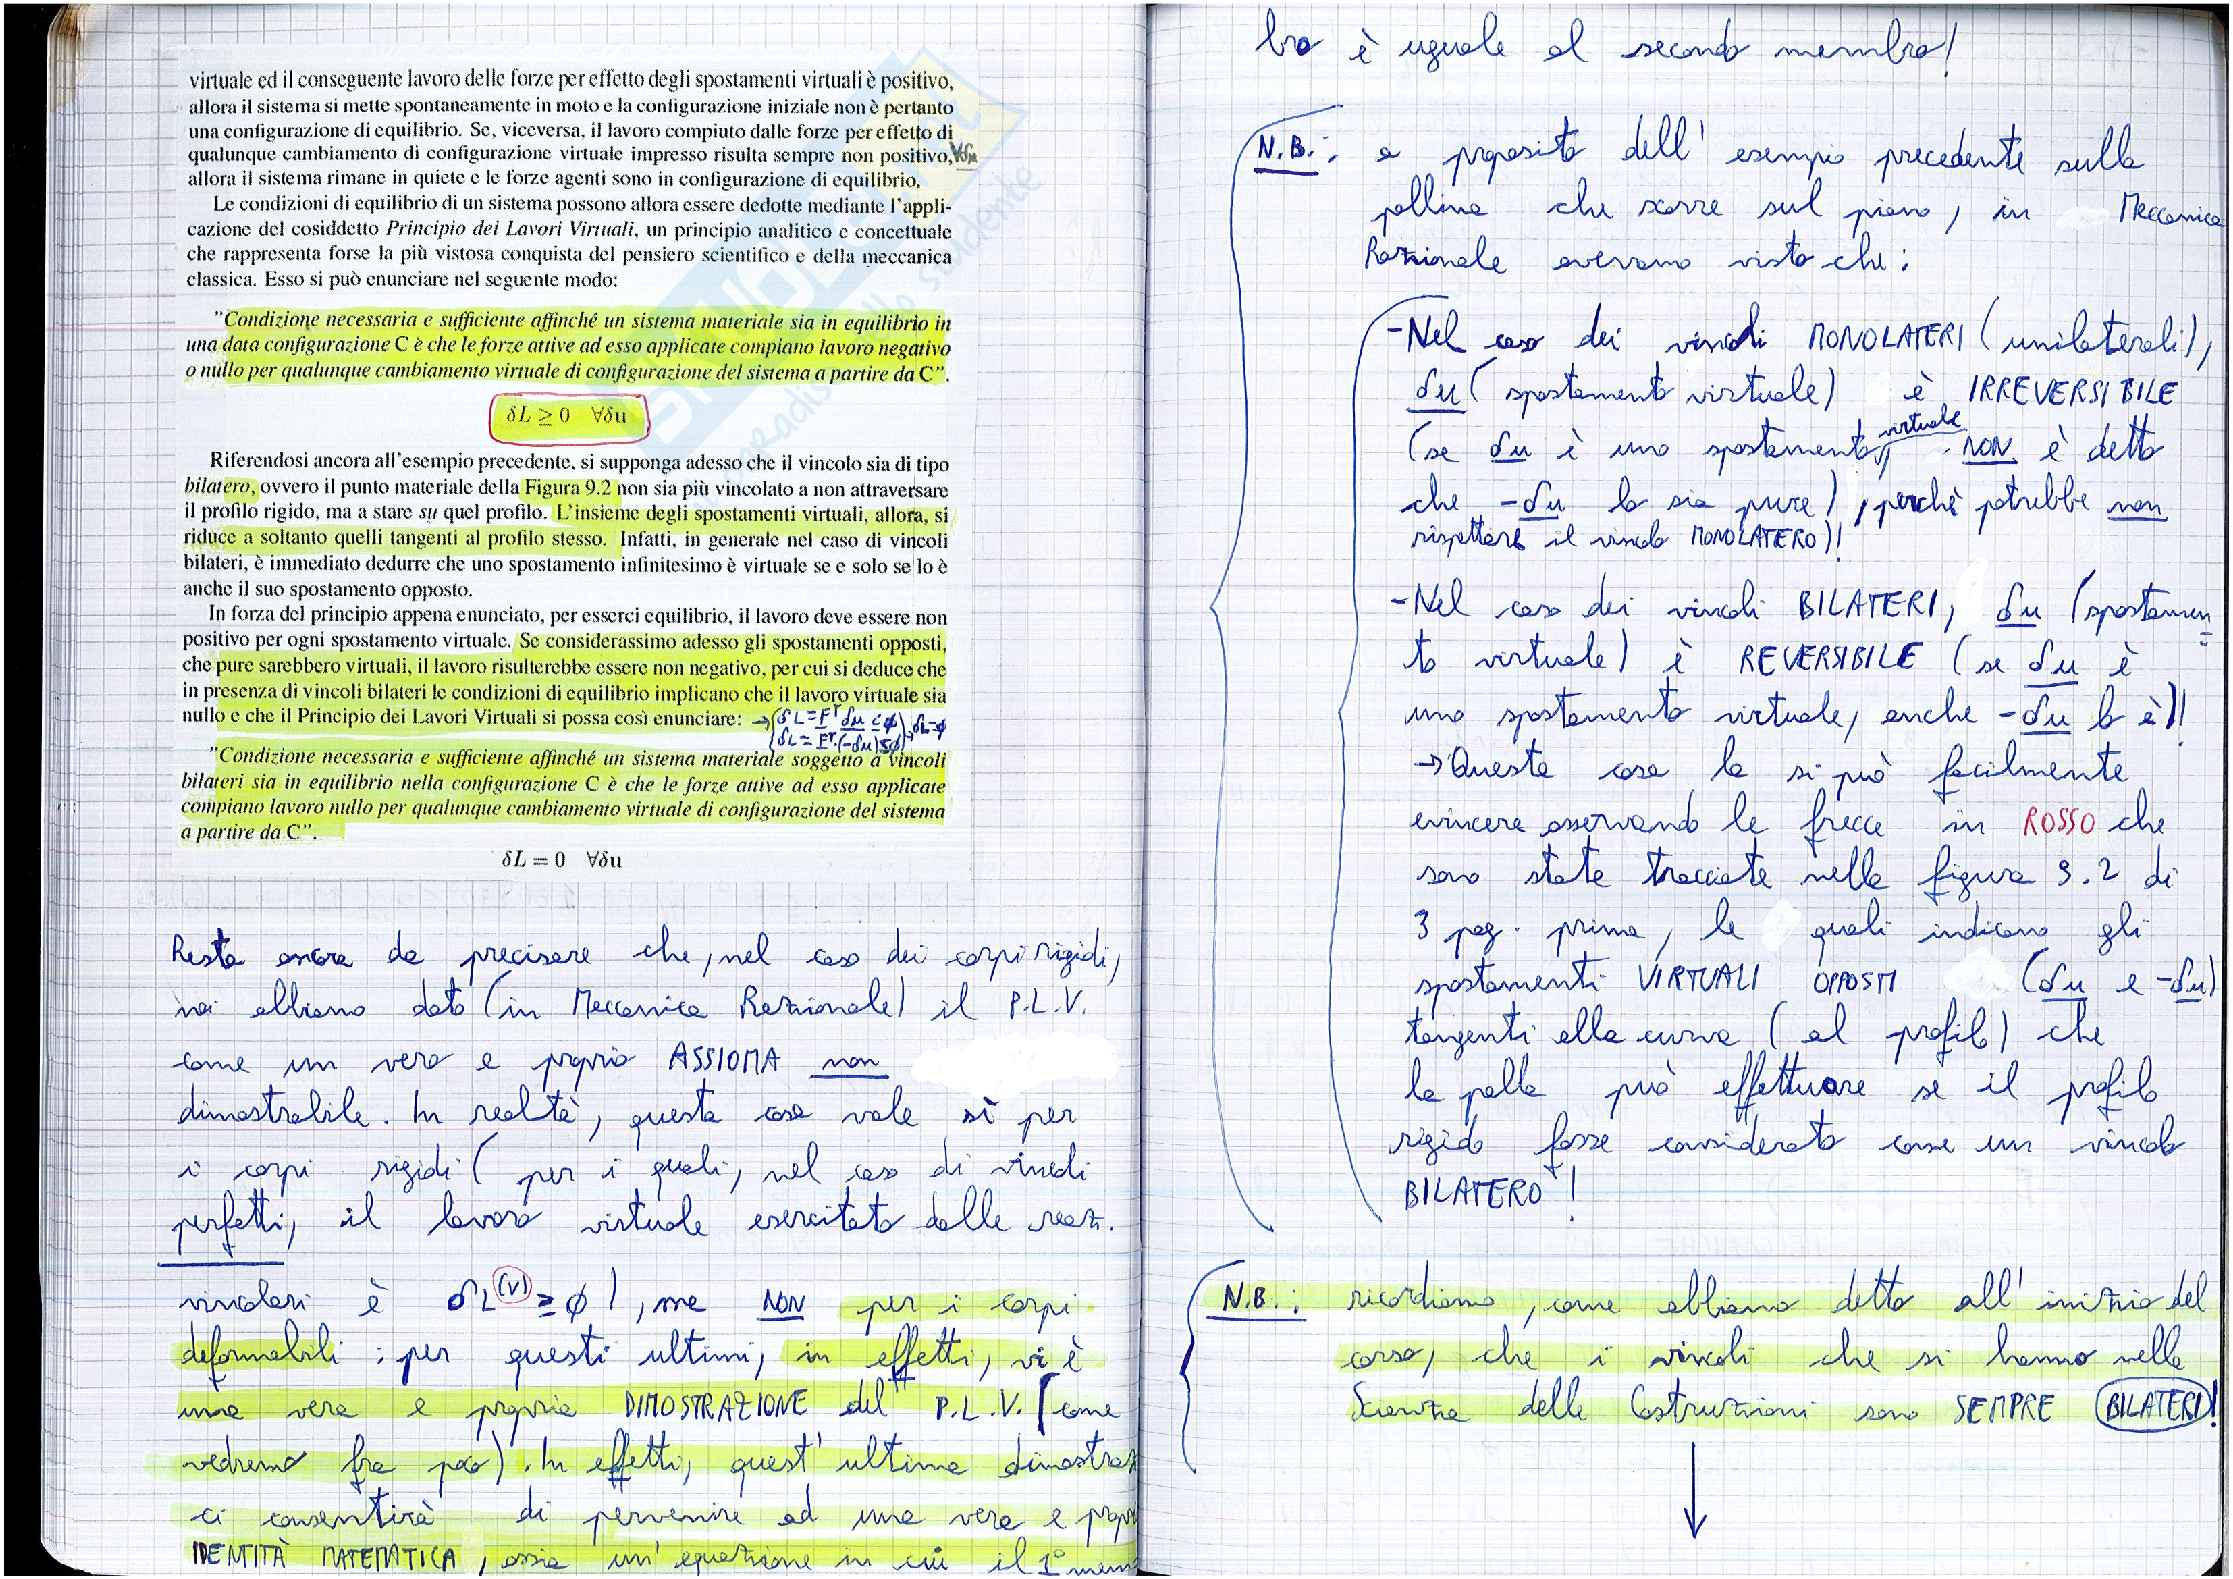 virtuale ed il conseguente lavoro delle forze per effetto degli spostamenti virtuali è positivo,
allora il sistema si mette spontaneamente in moto e la configurazione iniziale non è pertanto
una configurazione di equilibrio. Se, viceversa, il lavoro compiuto dalle forze per effetto di
qualunque cambiamento di configurazione virtuale impresso risulta sempre non positivo, ∀δu
allora il sistema rimane in quiete e le forze agenti sono in configurazione di equilibrio,
Le condizioni di equilibrio di un sistema possono allora essere dedotte mediante l'appli-
cazione del cosiddetto Principio dei Lavori Virtuali, un principio analitico e concettuale
che rappresenta forse la più vistosa conquista del pensiero scientifico e della meccanica
classica. Esso si può enunciare nel seguente modo:
"Condizione necessaria e sufficiente affinché un sistema materiale sia in equilibrio in
una data configurazione C è che le forze attive ad esso applicate compiano lavoro negativo
o nullo per qualunque cambiamento virtuale di configurazione del sistema a partire da C".
δL ≥ 0 ∀δu
Riferendosi ancora all'esempio precedente, si supponga adesso che il vincolo sia di tipo
bilatero, ovvero il punto materiale della Figura 9.2 non sia più vincolato a non attraversare
il profilo rigido, ma a stare su quel profilo. L'insieme degli spostamenti virtuali, allora, si
riduce a soltanto quelli tangenti al profilo stesso. Infatti, in generale nel caso di vincoli
bilateri, è immediato dedurre che uno spostamento infinitesimo è virtuale se e solo se lo è
anche il suo spostamento opposto.
In forza del principio appena enunciato, per esserci equilibrio, il lavoro deve essere non
positivo per ogni spostamento virtuale. Se considerassimo adesso gli spostamenti opposti,
che pure sarebbero virtuali, il lavoro risulterebbe essere non negativo, per cui si deduce che
in presenza di vincoli bilateri le condizioni di equilibrio implicano che il lavoro virtuale sia
nullo e che il Principio dei Lavori Virtuali si possa così enunciare:
"Condizione necessaria e sufficiente affinché un sistema materiale soggetto a vincoli
bilateri sia in equilibrio nella configurazione C è che le forze attive ad esso applicate
compiano lavoro nullo per qualunque cambiamento virtuale di configurazione del sistema
a partire da C".
δL = 0 ∀δu
Resta ancora da precisare che, nel caso dei corpi rigidi,
noi abbiamo dato (in Meccanica Razionale) il P.L.V.
come un vero e proprio ASSIOMA non
dimostrabile. In realtà, questa cosa vale sì per
i corpi rigidi (per i quali, nel caso di vincoli
perfetti, il lavoro virtuale esercitato dalle reaz.
vincolari è δL(V) ≥ ∅), ma NON per i corpi
deformabili; per questi ultimi, in effetti, vi è
una vera e propria DIMOSTRAZIONE del P.L.V. (come
vedremo fra poco). In effetti, quest'ultima dimostraz
ci consentirà di pervenire ad una vera e propr
IDENTITÀ MATEMATICA, ossia un'equazione in cui il 1° mem
bro è uguale al secondo membro!
N.B.: a proposito dell'esempio precedente sulla
pallina che scorre sul piano, in Meccanica
Razionale avevamo visto che:
- Nel caso dei vincoli MONOLATERI (unilaterali),
δu (spostamento virtuale) è IRREVERSIBILE
(se δu è uno spostamento virtuale, NON è detto
che -δu lo sia pure), perchè potrebbe non
rispettare il vincolo MONOLATERO)!
- Nel caso dei vincoli BILATERI, δu (spostamen
to virtuale) è REVERSIBILE (se δu è
uno spostamento virtuale, anche -δu lo è)!
→ Questa cosa la si può facilmente
evincere osservando le frecce in ROSSO che
sono state tracciate nella figura 9.2 di
3 pag. prima, le quali indicano gli
spostamenti VIRTUALI OPPOSTI (δu e -δu)
tangenti alla curva (al profilo) che
la palla può effettuare se il profilo
rigido fosse considerato come un vincolo
BILATERO!
N.B.: ricordiamo, come abbiamo detto all'inizio del
corso, che i vincoli che si hanno nella
Scienza delle Costruzioni sono SEMPRE BILATERI!